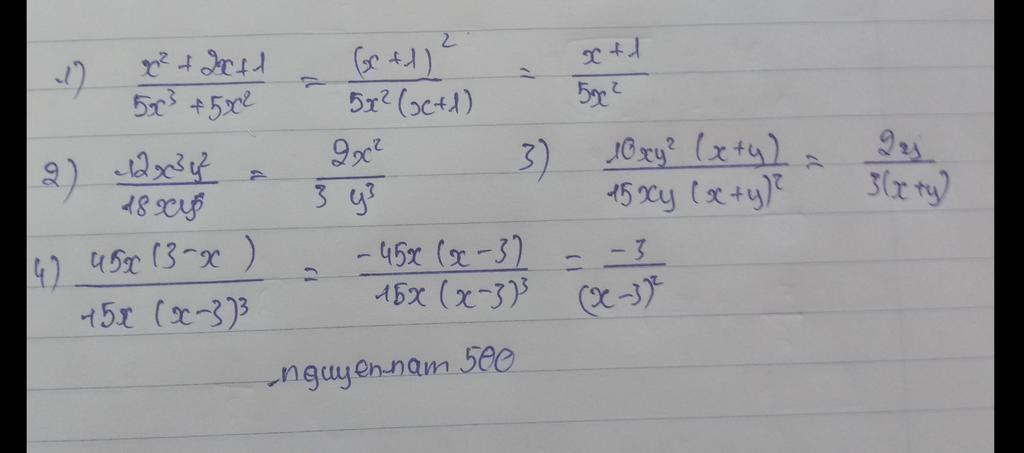 1) (x² + 2x + 1)/(5x³ + 5x²) = (x + 1)²/(5x² (x + 1)) = (x + 1)/(5x²)
2) (12x³y²)/(18xy⁵) = (2x²)/(3y³) 3) (10xy² (x + y))/(15xy (x + y)²) = (2y)/(3(x + y))
4) (45x (3 - x))/(15x (x - 3)³) = (-45x (x - 3))/(15x (x - 3)³) = (-3)/((x - 3)²)
nguyennam 500